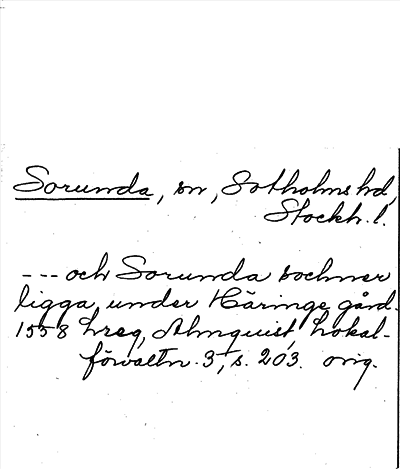 Sorunda, sn, Sotholms hd,
Stockh. l.
--- och Sorunda sochner
ligga under Häringe gård.
1558 hreg, Almquist, Lokal-
förvaltn. 3, s. 203. orig.